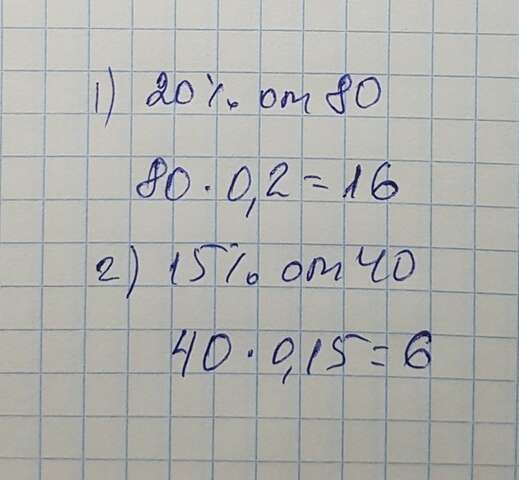 1) 20% от 80
80 · 0,2 = 16
2) 15% от 40
40 · 0,15 = 6